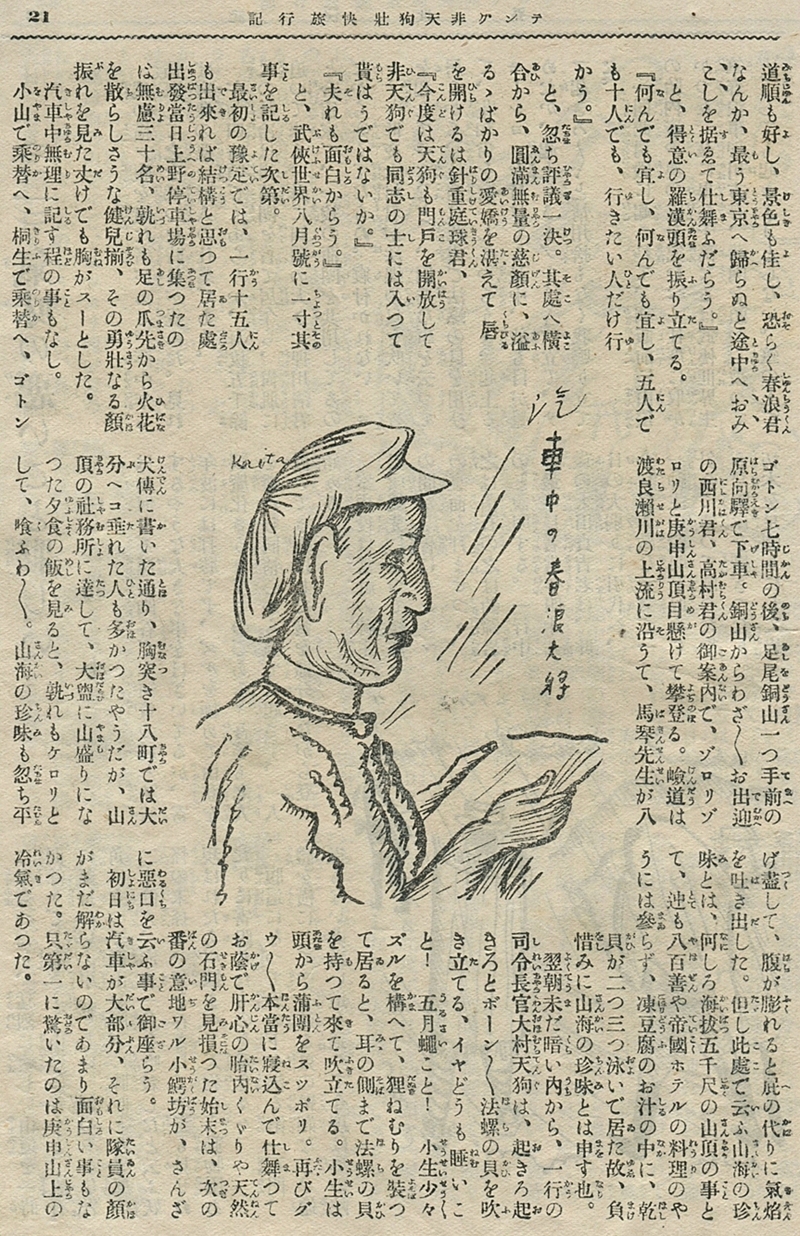 21
テング非天狗壯快旅行記
道順も好し、景色も佳し、恐らく春浪君
なんか、最う東京へ歸らぬと途中へおみ
こしを据ゑて仕舞ふだらう。』
と、得意の羅漢頭を振り立てる。
『何んでも宜し、何んでも宜し、五人で
も十人でも、行きたい人だけ行
かう。』
と、忽ち評議一決。其處へ横
合から、圓滿無量の慈顏に、溢
るゝばかりの愛嬌を湛えて唇
を開けるは針重庭球君、
『今度は天狗も門戸を開放して
非天狗でも同志の士には入つて
貰はうではないか。』
『夫れも面白からう。』
と、武俠世界八月號に一寸其
事を記した次第。
最初の豫定では、一行十五人
も出來れば結構と思つて居た處
出發當日上野停車場に集つたの
は無慮三十名、孰れも足の爪先から火花
を散らしさうな健兒揃、その勇壯なる顏
振れを見た丈けでも胸がスーとした。
汽車中無理に記す程の事もなし。
小山で乘替へ、桐生で乘替へ、ゴトン
汽車中の春浪大將
ゴトン七時間の後、足尾銅山一つ手前の
原向驛で下車。銅山からわざ〱お出迎
の西川君、高村君の御案内で、ゾロリゾ
ロリと庚申山頂目懸けて攀登る。嶮道は
渡良瀬川の上流に沿うて、馬琴先生が八
犬傳に書いた通り、胸突き十八町では大
分ヘコ垂れた人も多かつたやうだが、山
頂の社務所に達して、大盥に山盛りにな
つた夕食の飯を見ると、孰れもケロリと
して、喰ふわ〱。山海の珍味も忽ち平
げ盡して、腹が膨れると屁の代りに氣焰
を吐き出した。但し此處で云ふ山海の珍
味とは、何しろ海拔五千尺の山頂の事と
て、迚も八百善や帝國ホテルの料理のや
うには參らず、凍豆腐のお汁の中に、乾
貝が二つ三つ泳いで居た故、負
惜みに山海の珍味とは申す也。
翌朝未だ暗い内から、一行の
司令長官大村天狗は、起きろ起
きろとボーン〱法螺の貝を吹
き立てる、イヤどうも睡いこ
と！五月蠅こと！小生少々
ズルを構へて、狸ねむりを裝つ
て居ると、耳の側まで法螺の貝
を持つて來て吹立てる。小生は
頭から蒲團をスツポリ。再びグ
ウ〱本當に寢込んで仕舞つて
お蔭で肝心の胎内くゞりや天然
の石門を見損つた始末は、次の
番の意地ワル小鰐坊が、さんざ
に惡口を云ふ事で御座らう。
初日は汽車が大部分、それに隊員の顏
がまだ解らないのであまり面白い事もな
かつた。只第一に驚いたのは庚申山上の
冷氣であつた。